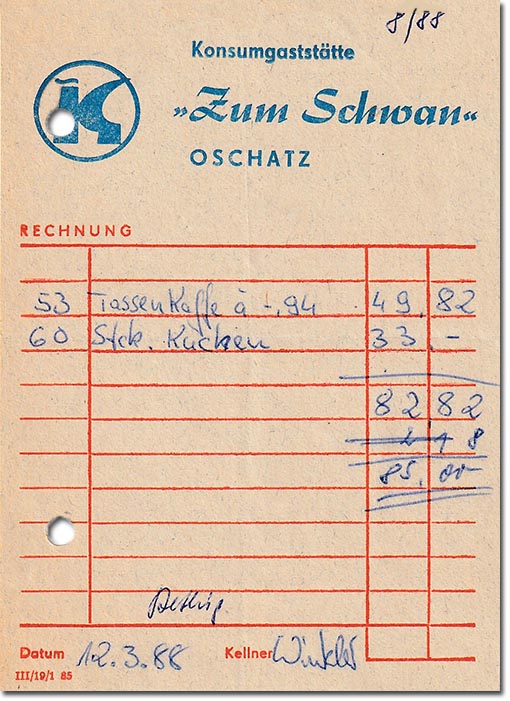 8/88
Konsumgaststätte
„Zum Schwan“
OSCHATZ
K
RECHNUNG
53 Tassen Kaffe à -,94 49,82
60 Stck. Kuchen 33,-
82 82
2 18
85,00
Datum 12.3.88 Kellner Winkler
III/19/1 85